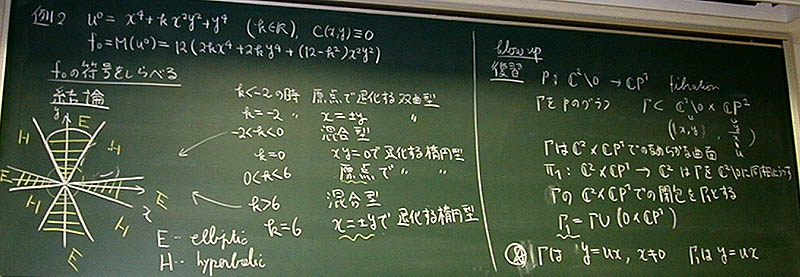 例12 u⁰ = x⁴+kx²y²+y⁴ (k∈R), C(x,y)≡0
f₀=M(u⁰)=12(2kx⁴+2ky⁴+(12-k²)x²y²)
f₀の符号をしらべる
結論
k<-2の時 原点で退化する双曲型
k=-2 〃 x=±y 〃
-2<k<0 混合型
k=0 xy=0で退化する楕円型
0<k<6 原点で 〃 〃
k>6 混合型
k=6 x=±yで退化する楕円型
y
x
E
H
H
E
E
H
H
E
E -- elliptic
H -- hyperbolic
blow up
復習 P: ℂ²\0 → ℂP¹ fibration
ΓをPのグラフ Γ⊂ ℂ²\0 × ℂP¹
(x,y)
Γはℂ²×ℂP¹でのなめらかな曲面
π₁: ℂ²×ℂP¹ → ℂ² はΓをℂ²\0に同相にうつす
Γのℂ²×ℂP¹での閉包をΓ₁とする
Γ₁=Γ∪(0×ℂP¹)
Γは y=ux, x≠0 Γ₁は y=ux